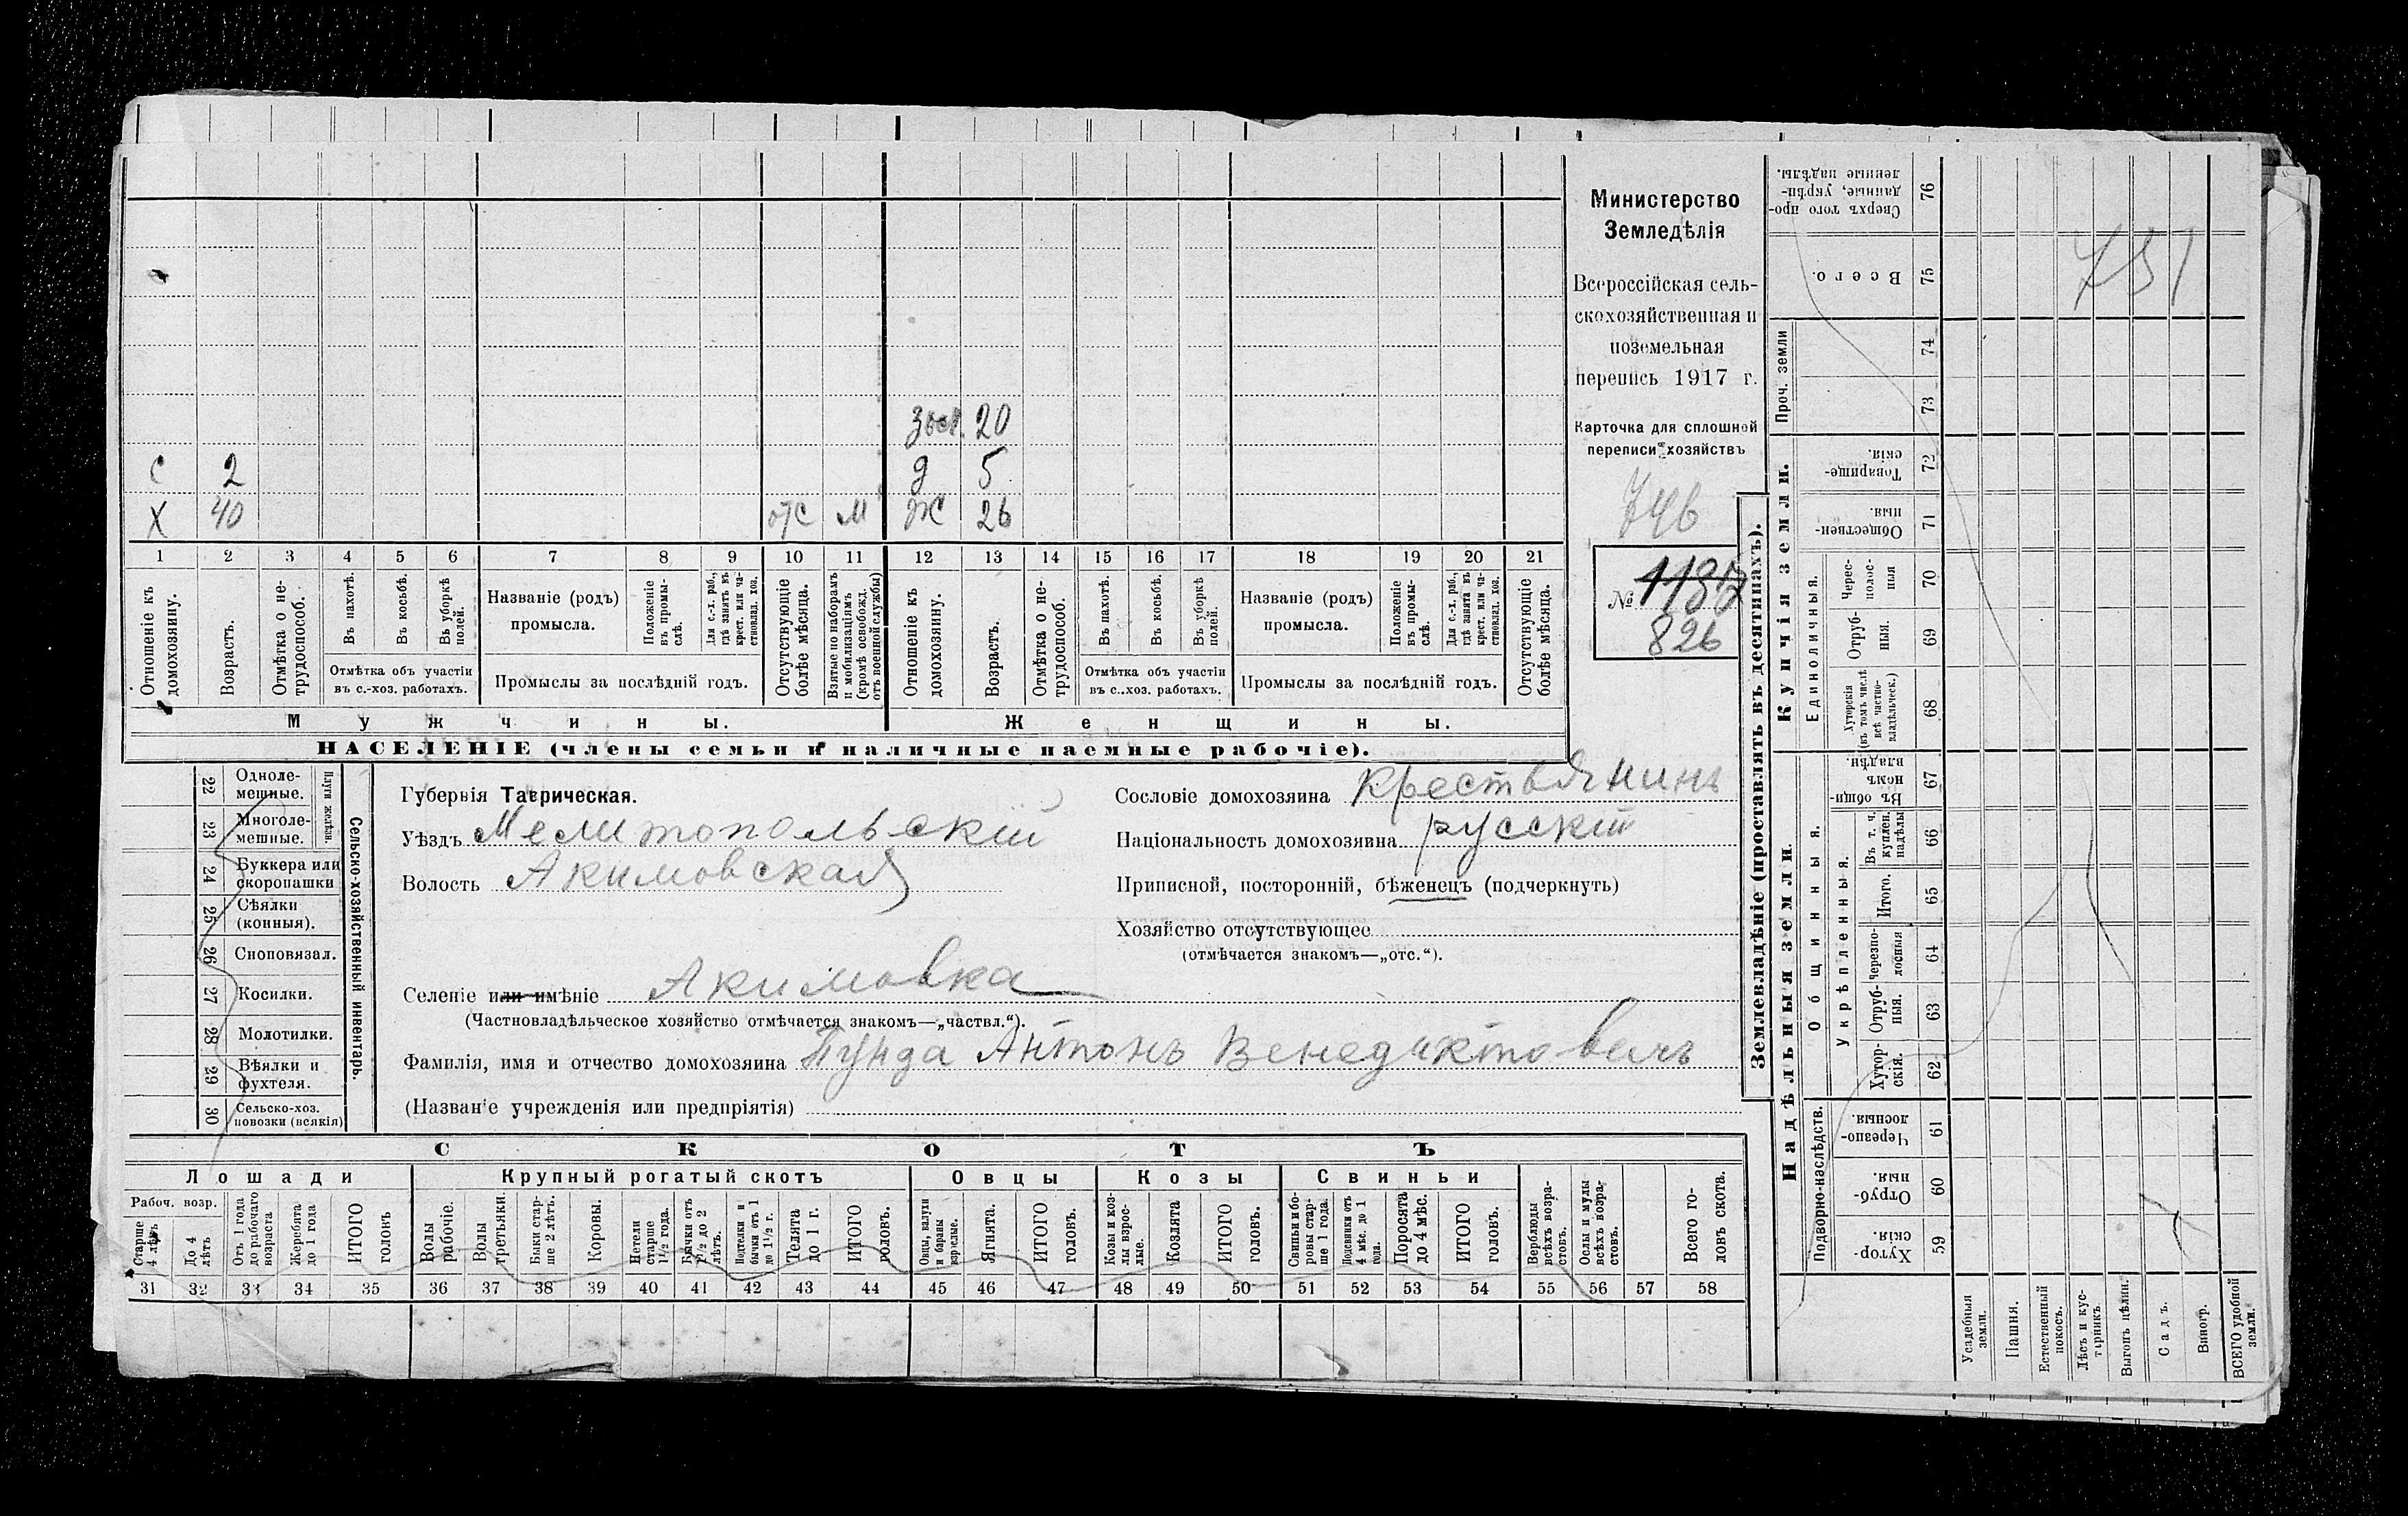 Министерство
Земледѣлія
Всероссійская сель-
скохозяйственная и
поземельная
перепись 1917 г.
Карточка для сплошной
переписи хозяйствъ
746
№ 1187
826
зол. 20
С 2 д 5
Х 40 отс м Ж 26
1 2 3 4 5 6 7 8 9 10 11 12 13 14 15 16 17 18 19 20 21
Отношеніе къ домохозяину.
Возрастъ.
Отмѣтка о не-трудоспособ.
Въ пахотѣ.
Въ косьбѣ.
Въ уборкѣ полей.
Отмѣтка объ участіи
въ с.-хоз. работахъ.
Названіе (родъ)
промысла.
Положеніе въ промы-слѣ.
Для с.-х. раб., гдѣ занятъ въ крест. или ча-стновлад. хоз.
Промыслы за послѣдній годъ.
Отсутствующіе болѣе мѣсяца.
Взятые по наборамъ и мобилизаціямъ (кромѣ освобожд. отъ военной службы)
Отношеніе къ домохозяину.
Возрастъ.
Отмѣтка о не-трудоспособ.
Въ пахотѣ.
Въ косьбѣ.
Въ уборкѣ полей.
Отмѣтка объ участіи
въ с.-хоз. работахъ.
Названіе (родъ)
промысла.
Положеніе въ промы-слѣ.
Для с.-х. раб., гдѣ занята въ крест. или ча-стновлад. хоз.
Промыслы за послѣдній годъ.
Отсутствующіе болѣе мѣсяца.
Мужчины. Женщины.
НАСЕЛЕНІЕ (члены семьи и наличные наемные рабочіе).
22 Одноле-мешные.
23 Многоле-мешные.
Плуги желѣзн.
24 Буккера или скоропашки
25 Сѣялки (конныя).
26 Сноповязал.
27 Косилки.
28 Молотилки.
29 Вѣялки и фухтеля.
30 Сельско-хоз. повозки (всякія)
Сельско-хозяйственный инвентарь.
Губернія Таврическая.
Уѣздъ Мелитопольскій
Волость Акимовская
Сословіе домохозяина крестьянинъ
Національность домохозяина русскій
Приписной, посторонній, бѣженецъ (подчеркнуть)
Хозяйство отсутствующее
(отмѣчается знакомъ—„отс.“).
Селеніе или имѣніе Акимовка
(Частновладѣльческое хозяйство отмѣчается знакомъ—„частвл.“).
Фамилія, имя и отчество домохозяина Пунда Антонъ Венедиктовичъ
(Названіе учрежденія или предпріятія)
СКОТЪ
Лошади Крупный рогатый скотъ Овцы Козы Свиньи
Рабоч. возр.
Старше 4 лѣтъ
До 4 лѣтъ
Отъ 1 года до рабочаго возраста
Жеребята до 1 года
ИТОГО головъ
Волы рабочіе.
Волы третьяки.
Быки стар-ше 2 лѣтъ.
Коровы.
Нетели старше 1½ года.
Бычки отъ 1½ до 2 лѣтъ.
Подтелки и бычки отъ 1 до 1½ г.
Телята до 1 г.
ИТОГО головъ.
Овцы, валухи и бараны взрослые.
Ягнята.
ИТОГО головъ.
Козы и коз-лы взрос-лые.
Козлята
ИТОГО головъ.
Свиньи и бо-ровы стар-ше 1 года.
Подсвинки отъ 4 мѣс. до 1 года.
Поросята до 4 мѣс.
ИТОГО головъ.
Верблюды всѣхъ возра-стовъ.
Ослы и мулы всѣхъ возра-стовъ.
Всего го-ловъ скота.
31 32 33 34 35 36 37 38 39 40 41 42 43 44 45 46 47 48 49 50 51 52 53 54 55 56 57 58
Землевладѣніе (проставлять въ десятинахъ).
Купчія земли.
Надѣльныя земли.
Сверхъ того про-данные, укрѣп-ленные надѣлы. 76
Всего. 75
Проч. земли 74
73
Товарище-скія. 72
Обществен-ныя. 71
Единоличныя.
Черес-полос-ныя 70
Отруб-ныя. 69
Хуторскія (въ томъ числѣ всѣ частно-владѣльческ.) 68
Общинныя.
Въ общи-номъ владѣн. 67
Укрѣпленныя.
Въ т. ч. куплен. надѣлы 66
Итого. 65
Черезпо-лосныя 64
Отруб-ныя. 63
Хутор-скія. 62
Подворно-наслѣдств.
Черезпо-лосныя 61
Отруб-ныя. 60
Хутор-скія. 59
Усадебныя земли.
Пашня.
Естественный покосъ.
Лѣсъ и кус-тарникъ.
Выгонъ цѣлин.
Садъ.
Виногр.
ВСЕГО удобной земли.
751